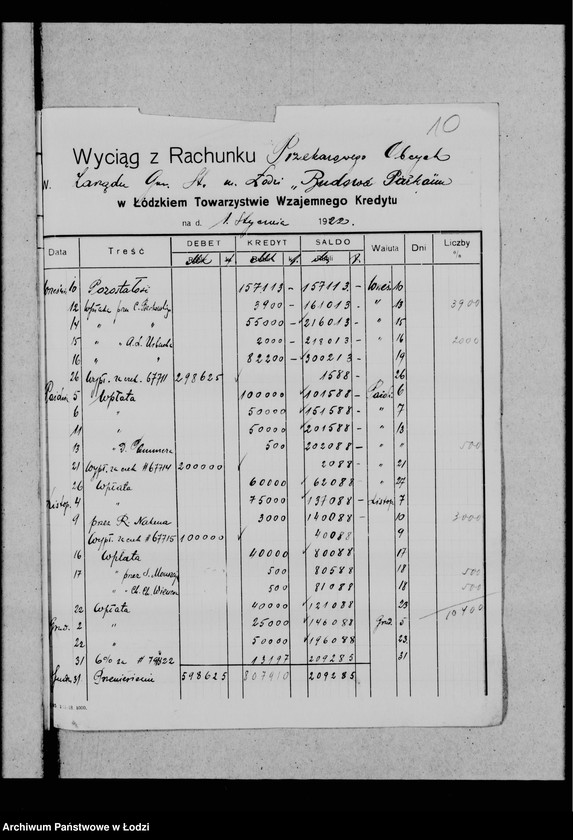 10
Wyciąg z Rachunku Przekazowego Obcych
N. Zarządu Gm. St. m. Łodzi „Budowa
w Łódzkiem Towarzystwie Wzajemnego Kredytu
na d. 1 Stycznia 1922.
Data Treść DEBET KREDYT SALDO Waluta Dni Liczby %
10 Pozostałość 157113 – 157113 – 10
12 Wpłata przez C. 3900 – 161013 – " 13 3900
14 " " 55000 – 216013 – " 15
15 " A. L. Urbach 2000 – 218013 – " 16 2000
16 " " 82200 – 300213 – 19
26 Wypł. za czek. 67711 298625 1588 – 26
Paźdz. 5 Wpłata 100000 101588 – Paźdz. 6
6 " 50000 151588 – " 7
11 " 50000 201588 – " 13
13 " D. 500 202088 – " " 500
21 Wypł. za czek #67714 200000 2088 – " 21
26 Wpłata 60000 62088 " 27
Listop. 4 " 75000 137088 Listop. 7
9 przez R. 3000 140088 10 3000
Wypł. za czek #67715 100000 40088 9
16 Wpłata 40000 80088 17
17 " przez J. 500 80588 18 500
" " Ch. 500 81088 18 500
22 Wpłata 40000 121088 23 10400
Grudz. 2 " 25000 146088 Grud. 5
22 " 50000 196088 23
31 6% za # 13197 209285 31
31 Przeniesienie 598625 807910 209285
Archiwum Państwowe w Łodzi